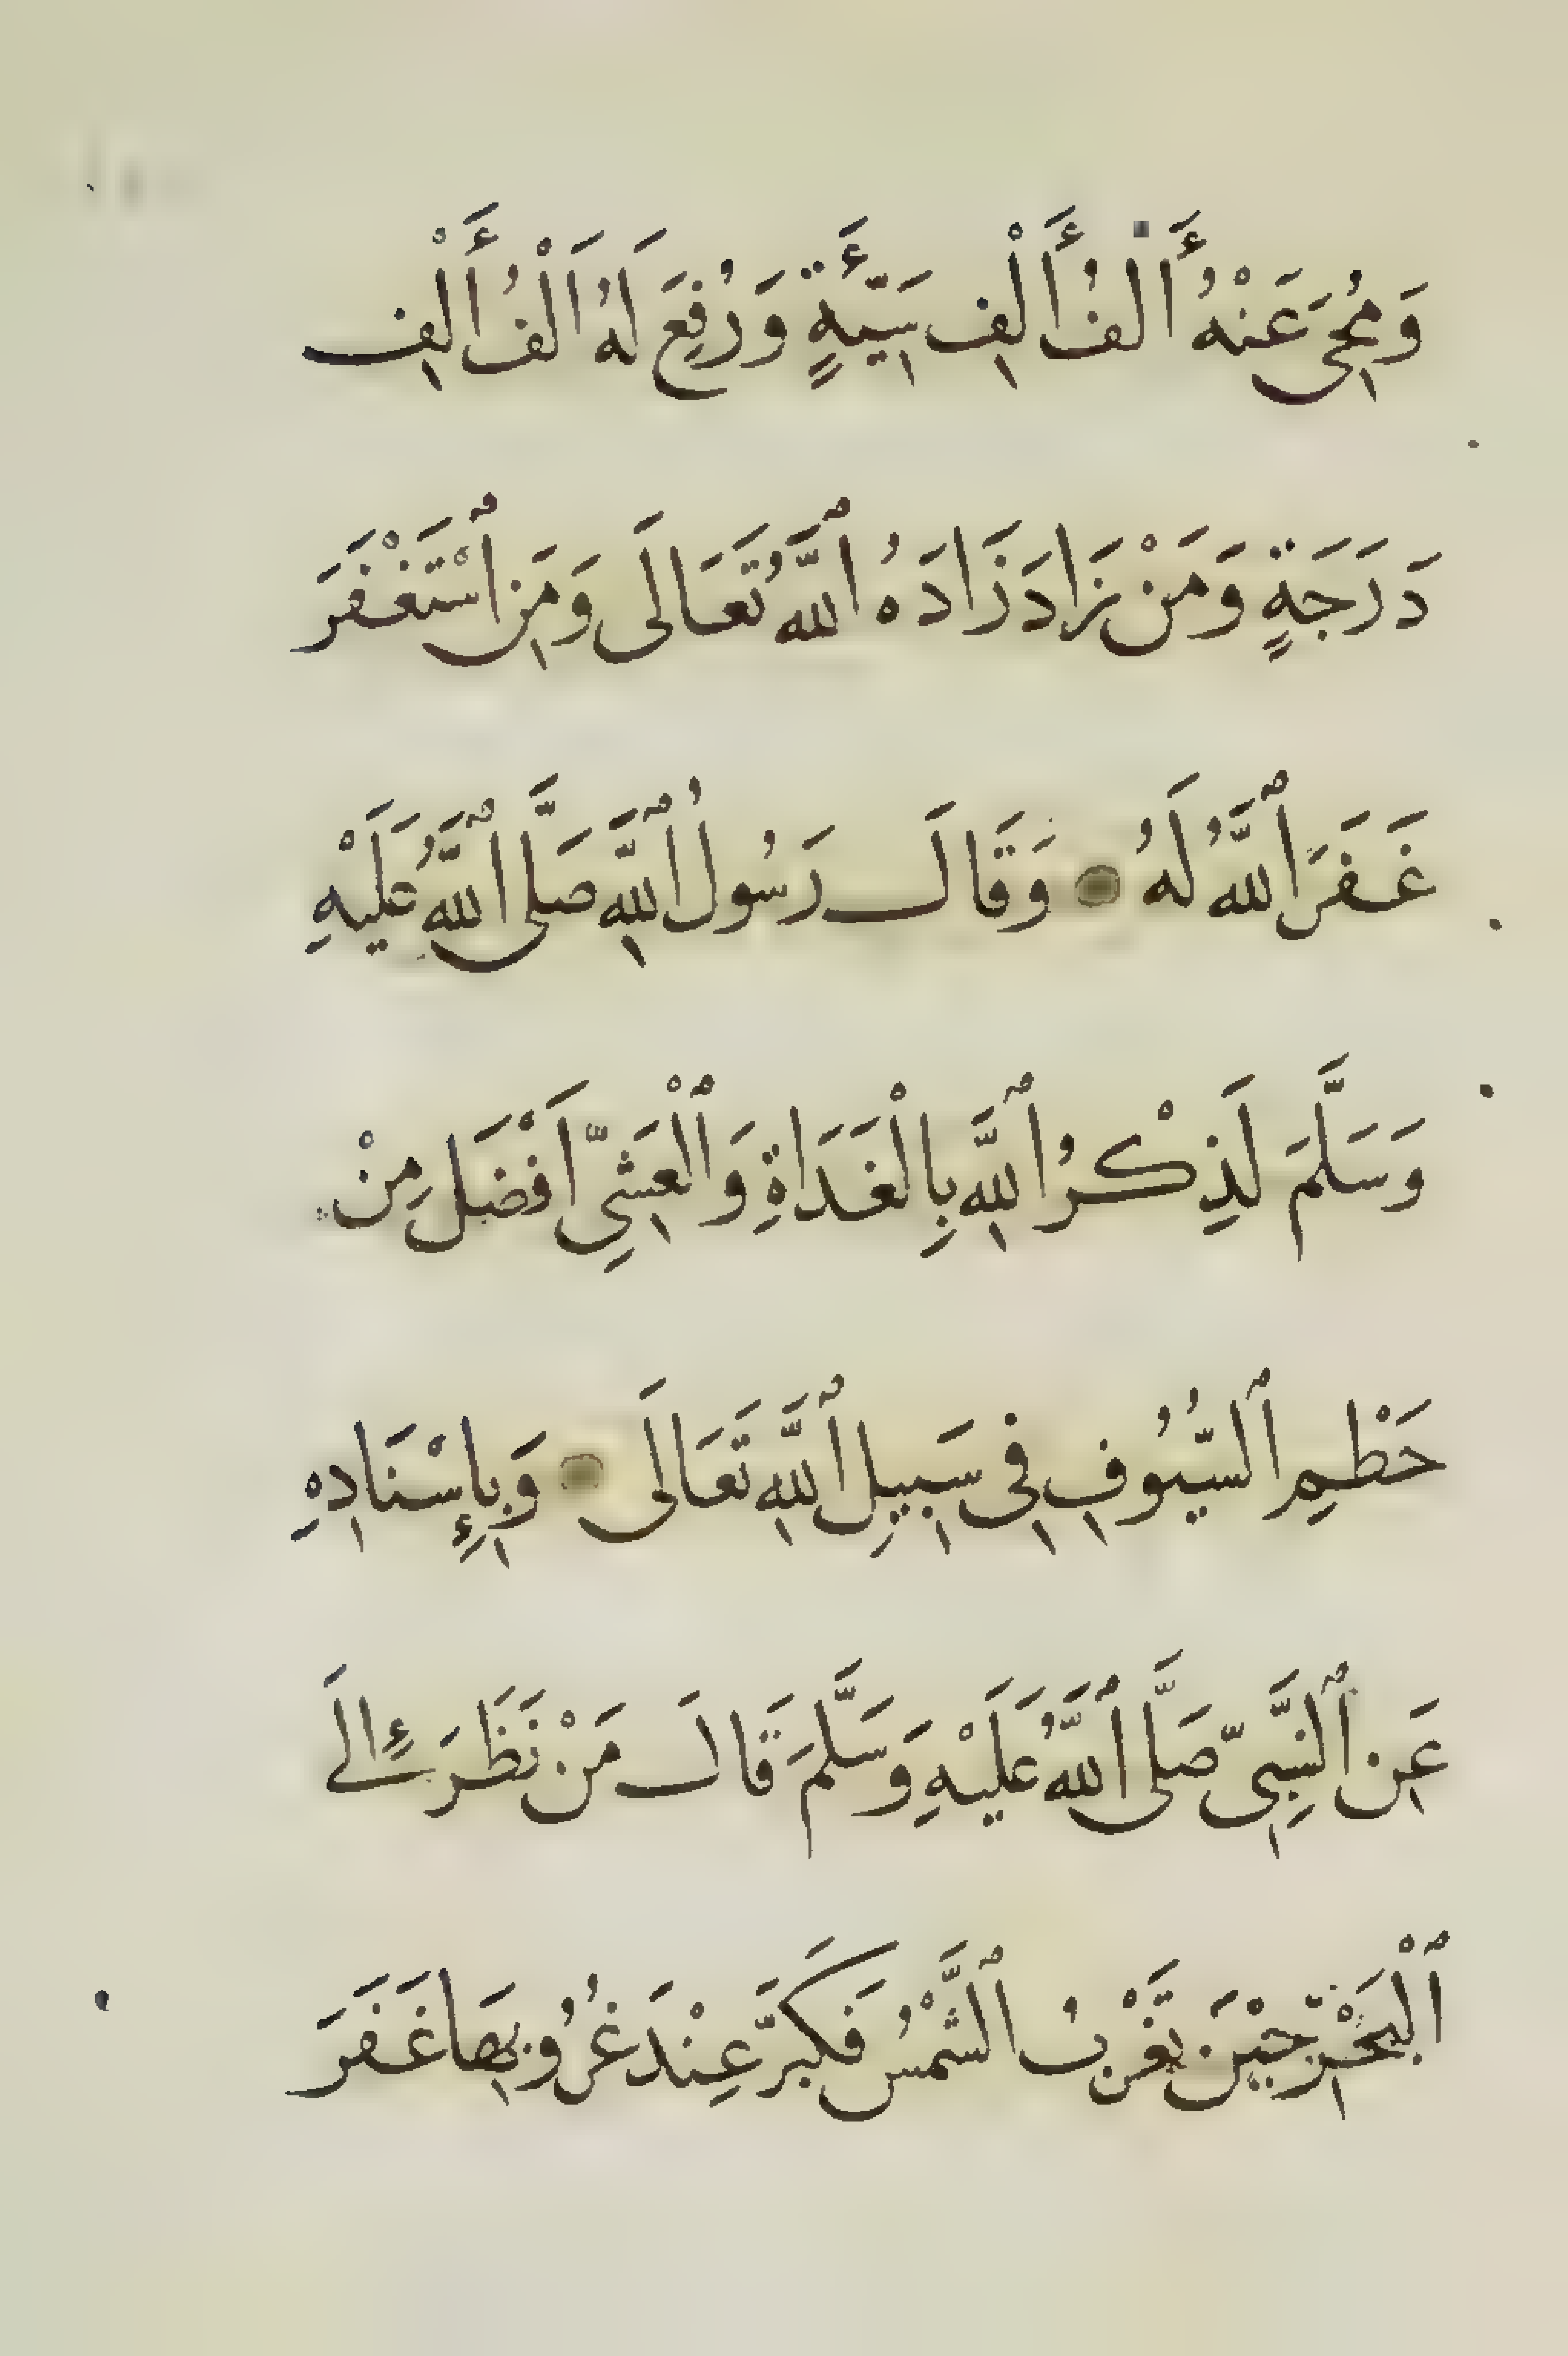 وَمُحِيَ عَنْهُ أَلْفُ أَلْفِ سَيِّئَةٍ وَرُفِعَ لَهُ اَلْفُ أَلْفِ
دَرَجَةٍ وَمَنْ زَادَ زَادَهُ ٱللَّهُ تَعَالَى وَمَنِ ٱسْتَغْفَرَ
غَفَرَ ٱللَّهُ لَهُ وَقَالَ رَسُولُ ٱللَّهِ صَلَّى ٱللَّهُ عَلَيْهِ
وَسَلَّمَ لَذِكْرُ ٱللَّهِ بِالْغَدَاةِ وَٱلْعَشِيِّ اَفْضَلُ مِنْ
حَظْمِ ٱلسُّيُوفِ فِي سَبِيلِ ٱللَّهِ تَعَالَى وَبِإِسْنَادِهِ
عَنِ ٱلنَّبِيِّ صَلَّى ٱللَّهُ عَلَيْهِ وَسَلَّمَ قَالَ مَنْ نَظَرَ إِلَى
ٱلْبَحْرِ حِيْنَ تَغْرُبُ ٱلشَّمْسُ فَكَبَّرَ عِنْدَ غُرُوبِهَا غَفَرَ